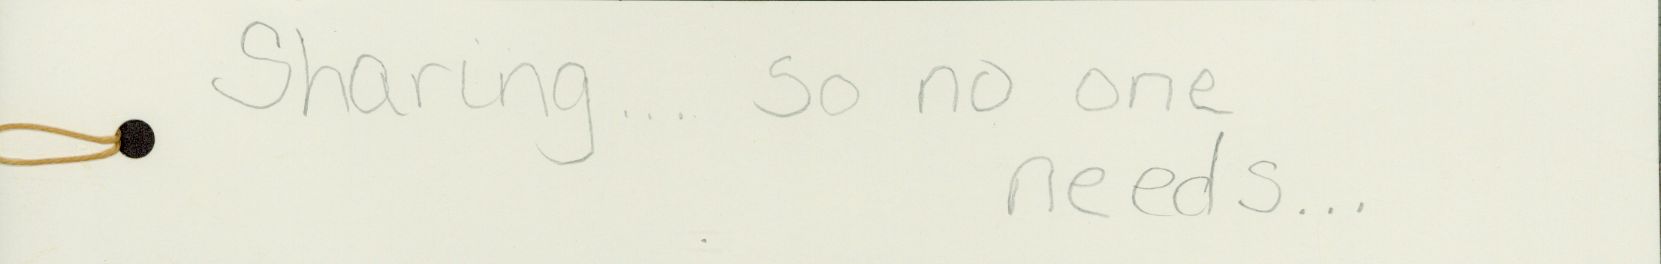 Sharing.... so no one
needs...